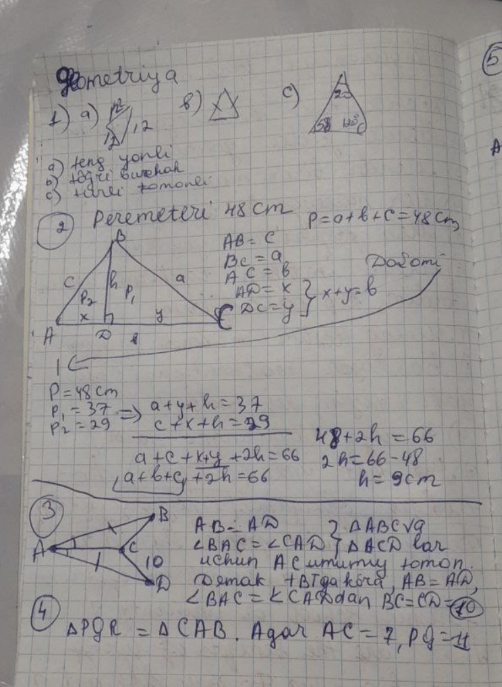 Geometriya
1) a) 12 12 12 b) c)
a) teng yonli
b) to'g'ri burchak
c) turli tomonli
② Peremeteri 48 cm
P=a+b+c=48cm
AB=c
BC=a
AC=b
AD=x
DC=y } x+y=b
Davomi
B
c h a
P₂ P₁
x y
A D C
P=48cm
P₁=37
P₂=29 => a+y+h=37
c+x+h=29
a+c+x+y+2h=66
a+b+c+2h=66
48+2h=66
2h=66-48
h=9cm
③ A B C D 10
AB=AD
∠BAC=∠CAD } △ABC va
△ACD lar
uchun AC umumiy tomon.
Demak TBTga ko'ra, AB=AD,
∠BAC=∠CAD dan BC=CD=10
④
△PQR = △CAB. Agar AC=7, PQ=4
5
A